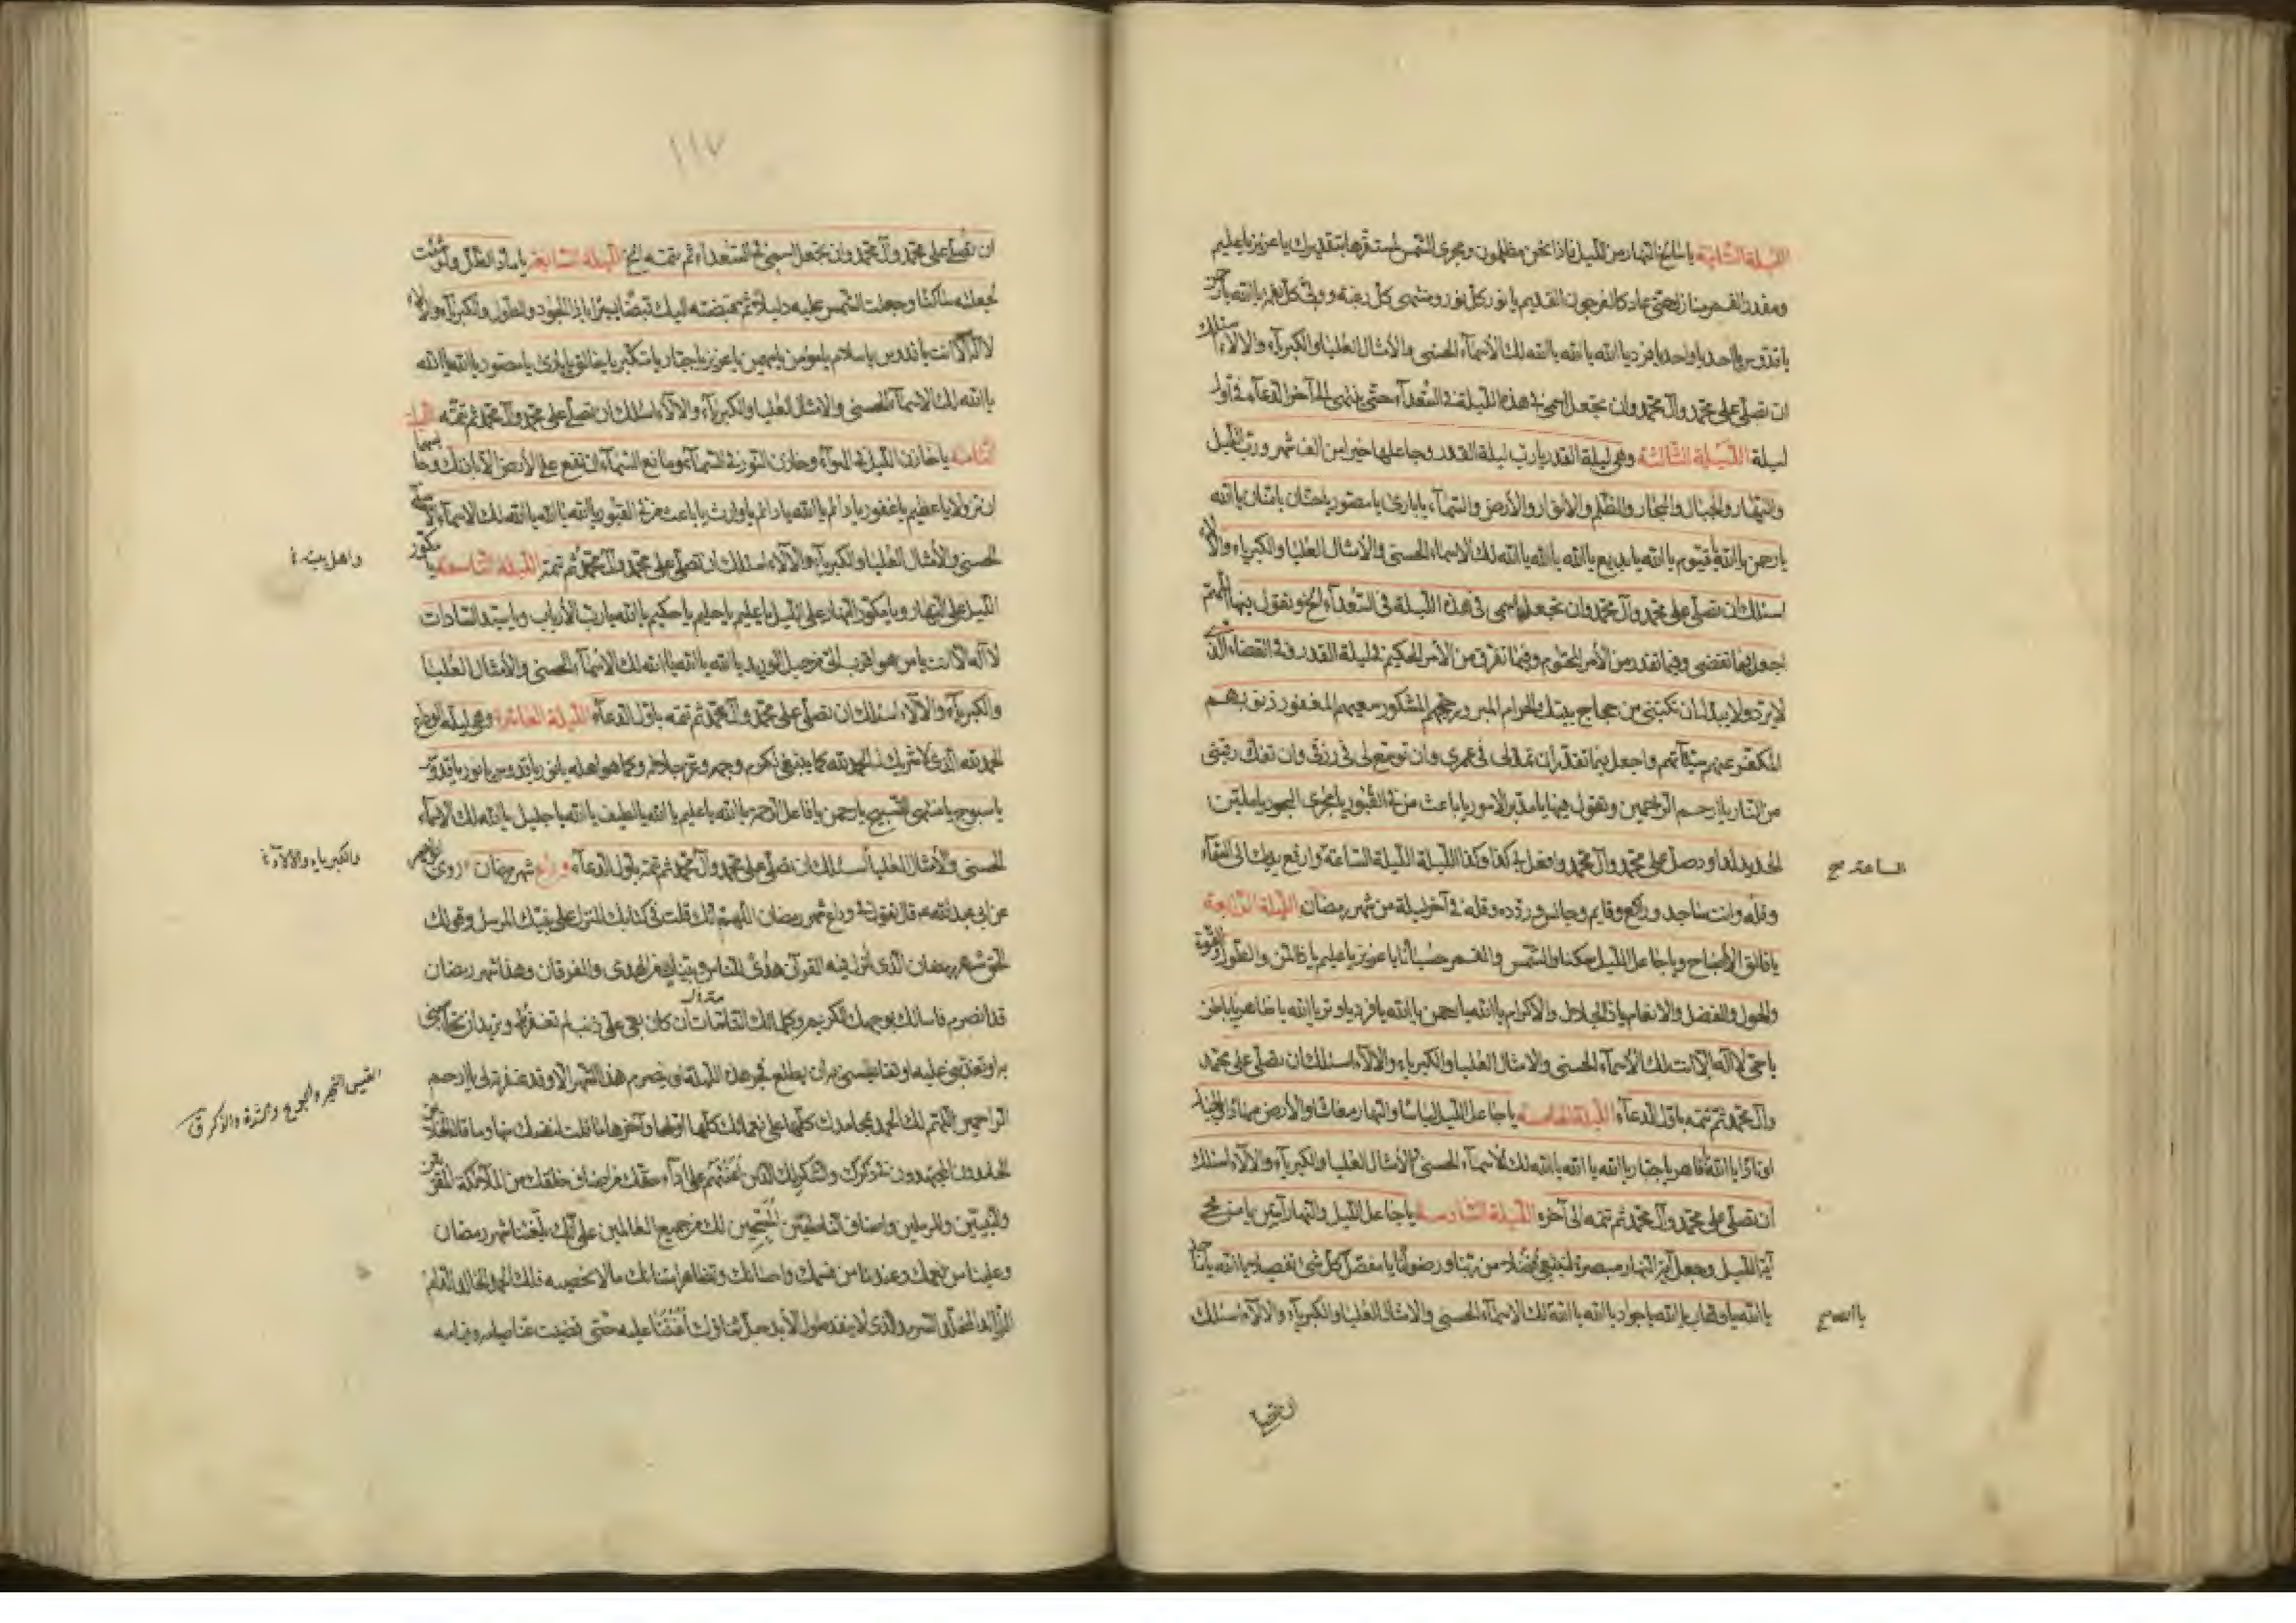 الليلة الثانية يا سالخ النهار من الليل فاذا نحن مظلمون ومجرى الشمس لمستقرها بتقديرك يا عزيز يا عليم
ومقدر القمر منازل حتى عاد كالعرجون القديم يا نور كل نور ومنتهى كل رغبة وولى كل نعمة يا الله يا رحمن
يا قدوس يا احد يا واحد يا فرد يا الله يا الله يا الله لك الأسماء الحسنى والأمثال العليا والكبرياء والالاء اسئلك
ان تصلى على محمد وآل محمد وان تجعل اسمى فى هذه الليلة فى السعداء حتى ينتهى الى آخر الدعاء فى أول
ليلة الليلة الثالثة وهى ليلة القدر يا رب ليلة القدر وجاعلها خيرا من الف شهر ورب الليل
والنهار والجبال والبحار والظلم والأنوار والأرض والسماء يا بارئ يا مصور يا حنان يا منان يا الله
يا رحمن يا الله يا قيوم يا الله يا بديع يا الله يا الله يا الله لك الاسماء الحسنى والأمثال العليا والكبرياء والآلاء
اسئلك ان تصلى على محمد وآل محمد وان تجعل اسمى فى هذه الليلة فى السعداء الخ وتقول فيها اللهم
اجعل فيما تقضى وفيما تقدر من الأمر المحتوم وفيما تفرق من الأمر الحكيم فى ليلة القدر فى القضاء الذى
لا يرد ولا يبدل ان تكتبنى من حجاج بيتك الحرام المبرور حجهم المشكور سعيهم المغفور ذنوبهم
المكفر عنهم سيئاتهم واجعل فيما تقدر ان تمد لى فى عمرى وان توسع لى فى رزقى وان تفك رقبتى
من النار يا ارحم الراحمين وتقول فيها يا مدبر الامور يا باعث من فى القبور يا مجرى البحور يا ملين
الحديد لداود صل على محمد وآل محمد وافعل بى كذا وكذا الليلة الليلة الساعة وارفع يديك الى السماء
الساعة صح
وقله وانت ساجد وراكع وقايم وجالس وردده وقله فى آخر ليلة من شهر رمضان الليلة الرابعة
يا فالق الأصباح ويا جاعل الليل سكنا والشمس والقمر حسبانا يا عزيز يا عليم يا ذا المن والطول والقوة
والحول والفضل والانعام يا ذا الجلال والاكرام يا الله يا رحمن يا الله يا فرد يا وتر يا الله يا ظاهر يا باطن
يا حى لا اله الا انت لك الأسماء الحسنى والامثال العليا والكبرياء والالاء اسئلك ان تصلى على محمد
وآل محمد ثم تتمه باول الدعاء الليلة الخامسة يا جاعل الليل لباسا والنهار معاشا والأرض مهادا والجبال
اوتادا يا الله يا قاهر يا جبار يا الله يا الله يا الله لك الأسماء الحسنى والأمثال العليا والكبرياء والآلاء اسئلك
أن تصلى على محمد وآل محمد ثم تتمه الى آخره الليلة السادسة يا جاعل الليل والنهار آيتين يا من محى
آية الليل وجعل آية النهار مبصرة لتبتغى فضلا من ربنا ورضوانا يا مفصل كل شئ تفصيلا يا الله يا
يا الله يا وهاب يا الله يا جواد يا الله يا الله لك الاسماء الحسنى والامثال العليا والكبرياء والالاء اسئلك
يا الله صح
ان تصلى
١١٧
ان تصلى على محمد وآل محمد وان تجعل اسمى فى السعداء ثم تتمه الخ الليلة السابعة يا ماد الظل ولو شئت
لجعلته ساكنا وجعلت الشمس عليه دليلا ثم قبضته اليك قبضا يسيرا يا ذا الجود والطول والكبرياء والالاء
لا اله الا انت يا قدوس يا سلام يا مؤمن يا مهيمن يا عزيز يا جبار يا متكبر يا خالق يا بارئ يا مصور يا الله يا الله
يا الله لك الاسماء الحسنى والامثال العليا والكبرياء والآلاء اسئلك ان تصلى على محمد وآل محمد ثم تتمه الليلة
الثامنة يا خازن الليل فى الهواء وخازن النور فى السماء ومانع السماء ان تقع على الأرض الا باذنك وحابسهما
ان تزولا يا عظيم يا غفور يا دائم يا الله يا دائم يا وارث يا باعث من فى القبور يا الله يا الله يا الله لك الاسماء
الحسنى والأمثال العليا والكبرياء والآلاء اسئلك ان تصلى على محمد وآل محمد ثم تتمه الليلة التاسعة يا مكور
واهل بيته
الليل على النهار ويا مكور النهار على الليل يا عليم يا حليم يا حكيم يا الله يا رب الأرباب ويا سيد السادات
لا اله الا انت يا من هو اقرب الى من حبل الوريد يا الله يا الله يا الله لك الاسماء الحسنى والأمثال العليا
والكبرياء والالاء اسئلك ان تصلى على محمد وآل محمد ثم تتمه باول الدعاء الليلة العاشرة وهى ليلة الوداع
الحمد لله الذى لا شريك له الحمد لله كما ينبغى لكرم وجهه وعز جلاله وكما هو اهله يا نور يا قدوس يا نور يا قدوس
يا سبوح يا منتهى التسبيح يا رحمن يا فاعل الرحمة يا الله يا عليم يا الله يا لطيف يا الله يا جليل يا الله لك الاسماء
الحسنى والأمثال العليا أسئلك ان تصلى على محمد وآل محمد ثم تتمه باول الدعاء وداع شهر رمضان روى
والكبرياء والآلاء
عن ابى عبد الله ع قال تقول فى وداع شهر رمضان اللهم انك قلت فى كتابك المنزل على نبيك المرسل وقولك
الحق شهر رمضان الذى أنزل فيه القرآن هدى للناس وبينات من الهدى والفرقان وهذا شهر رمضان
قد انصرم فاسالك بوجهك الكريم وكلماتك التامات ان كان بقى على ذنب لم تغفره لى وتريد ان تحاسبنى
به او تعذبنى عليه او تقايسنى به ان يطلع فجر هذه الليلة او يتصرم هذا الشهر الا وقد غفرته لى يا ارحم
الراحمين اللهم لك الحمد بمحامدك كلها على نعمائك كلها اولها وآخرها ما قلت لنفسك منها وما قال الخلائق
الحامدون المجتهدون فى ذكرك والشكر لك الذين اعنتهم على اداء حقك من اصناف خلقك من الملائكة المقربين
والنبيين والمرسلين واصناف الناطقين المسبحين لك من جميع العالمين على أنك بلغتنا شهر رمضان
وعلينا من نعمك وعندنا من قسمك واحسانك وتظاهر امتنانك ما لا نحصيه فلك الحمد الخالد الدائم
الزائد المخلد السرمد الذى لا ينفد طول الأبد جل ثناؤك أعنتنا عليه حتى قضيت عنا صيامه وقيامه